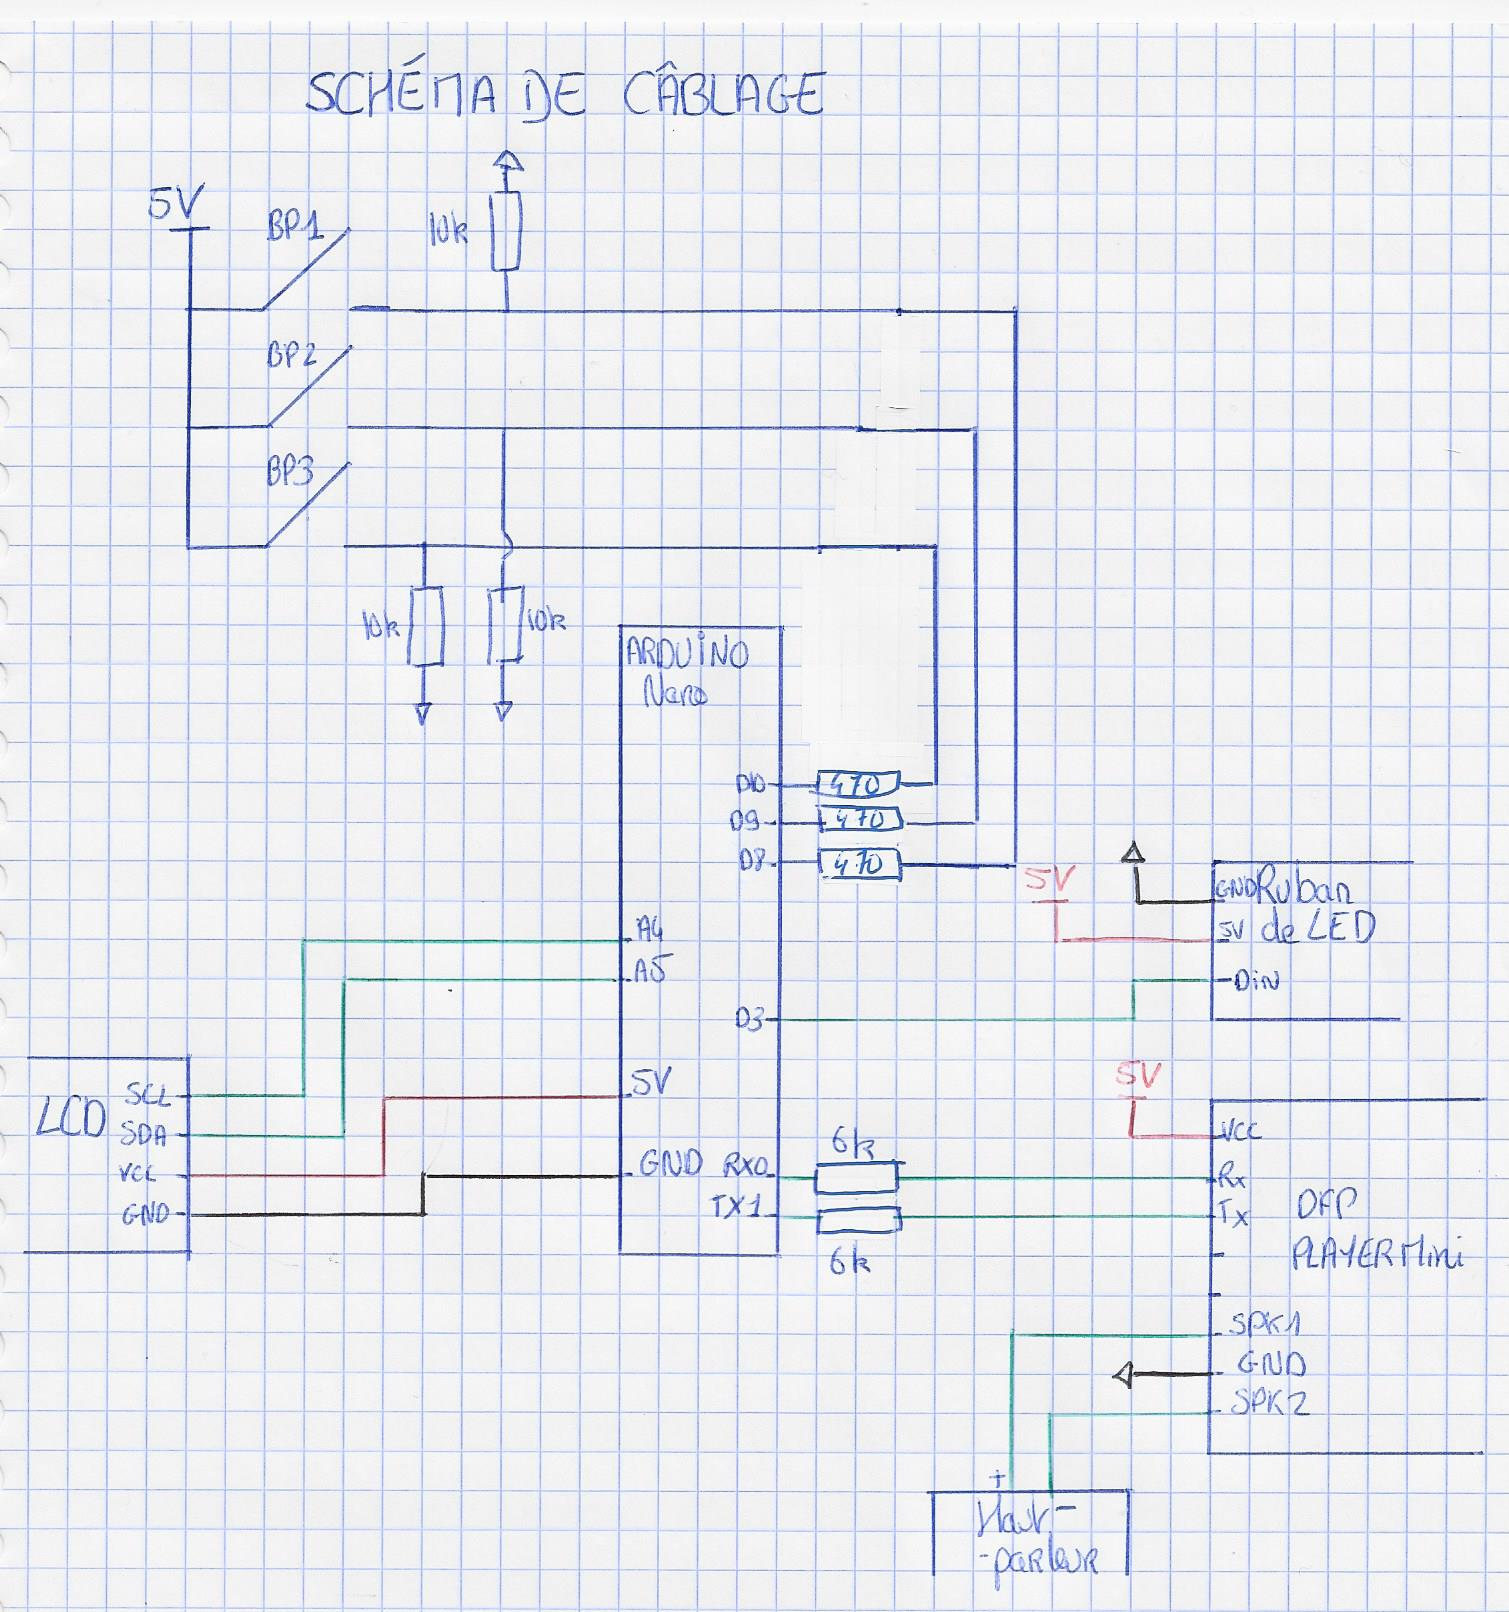 SCHÉMA DE CÂBLAGE
5V
BP1
10k
BP2
BP3
10k
10k
ARDUINO
Nano
D10
470
D9
470
D8
470
5V
GND Ruban
5V de LED
Din
A4
A5
D3
5V
GND
RX0
TX1
6k
6k
LCD
SCL
SDA
VCC
GND
5V
VCC
Rx
Tx
DFP
PLAYER Mini
SPK1
GND
SPK2
+
-
Haut
-parleur